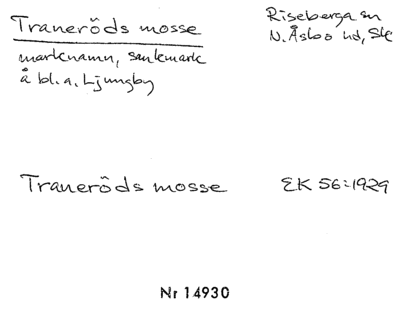 Traneröds mosse
Riseberga sn
N. Åsbo hd, Sk
marknamn, sankmark
å bl.a. Ljungby
Traneröds mosse
EK 56:1929
Nr 14930